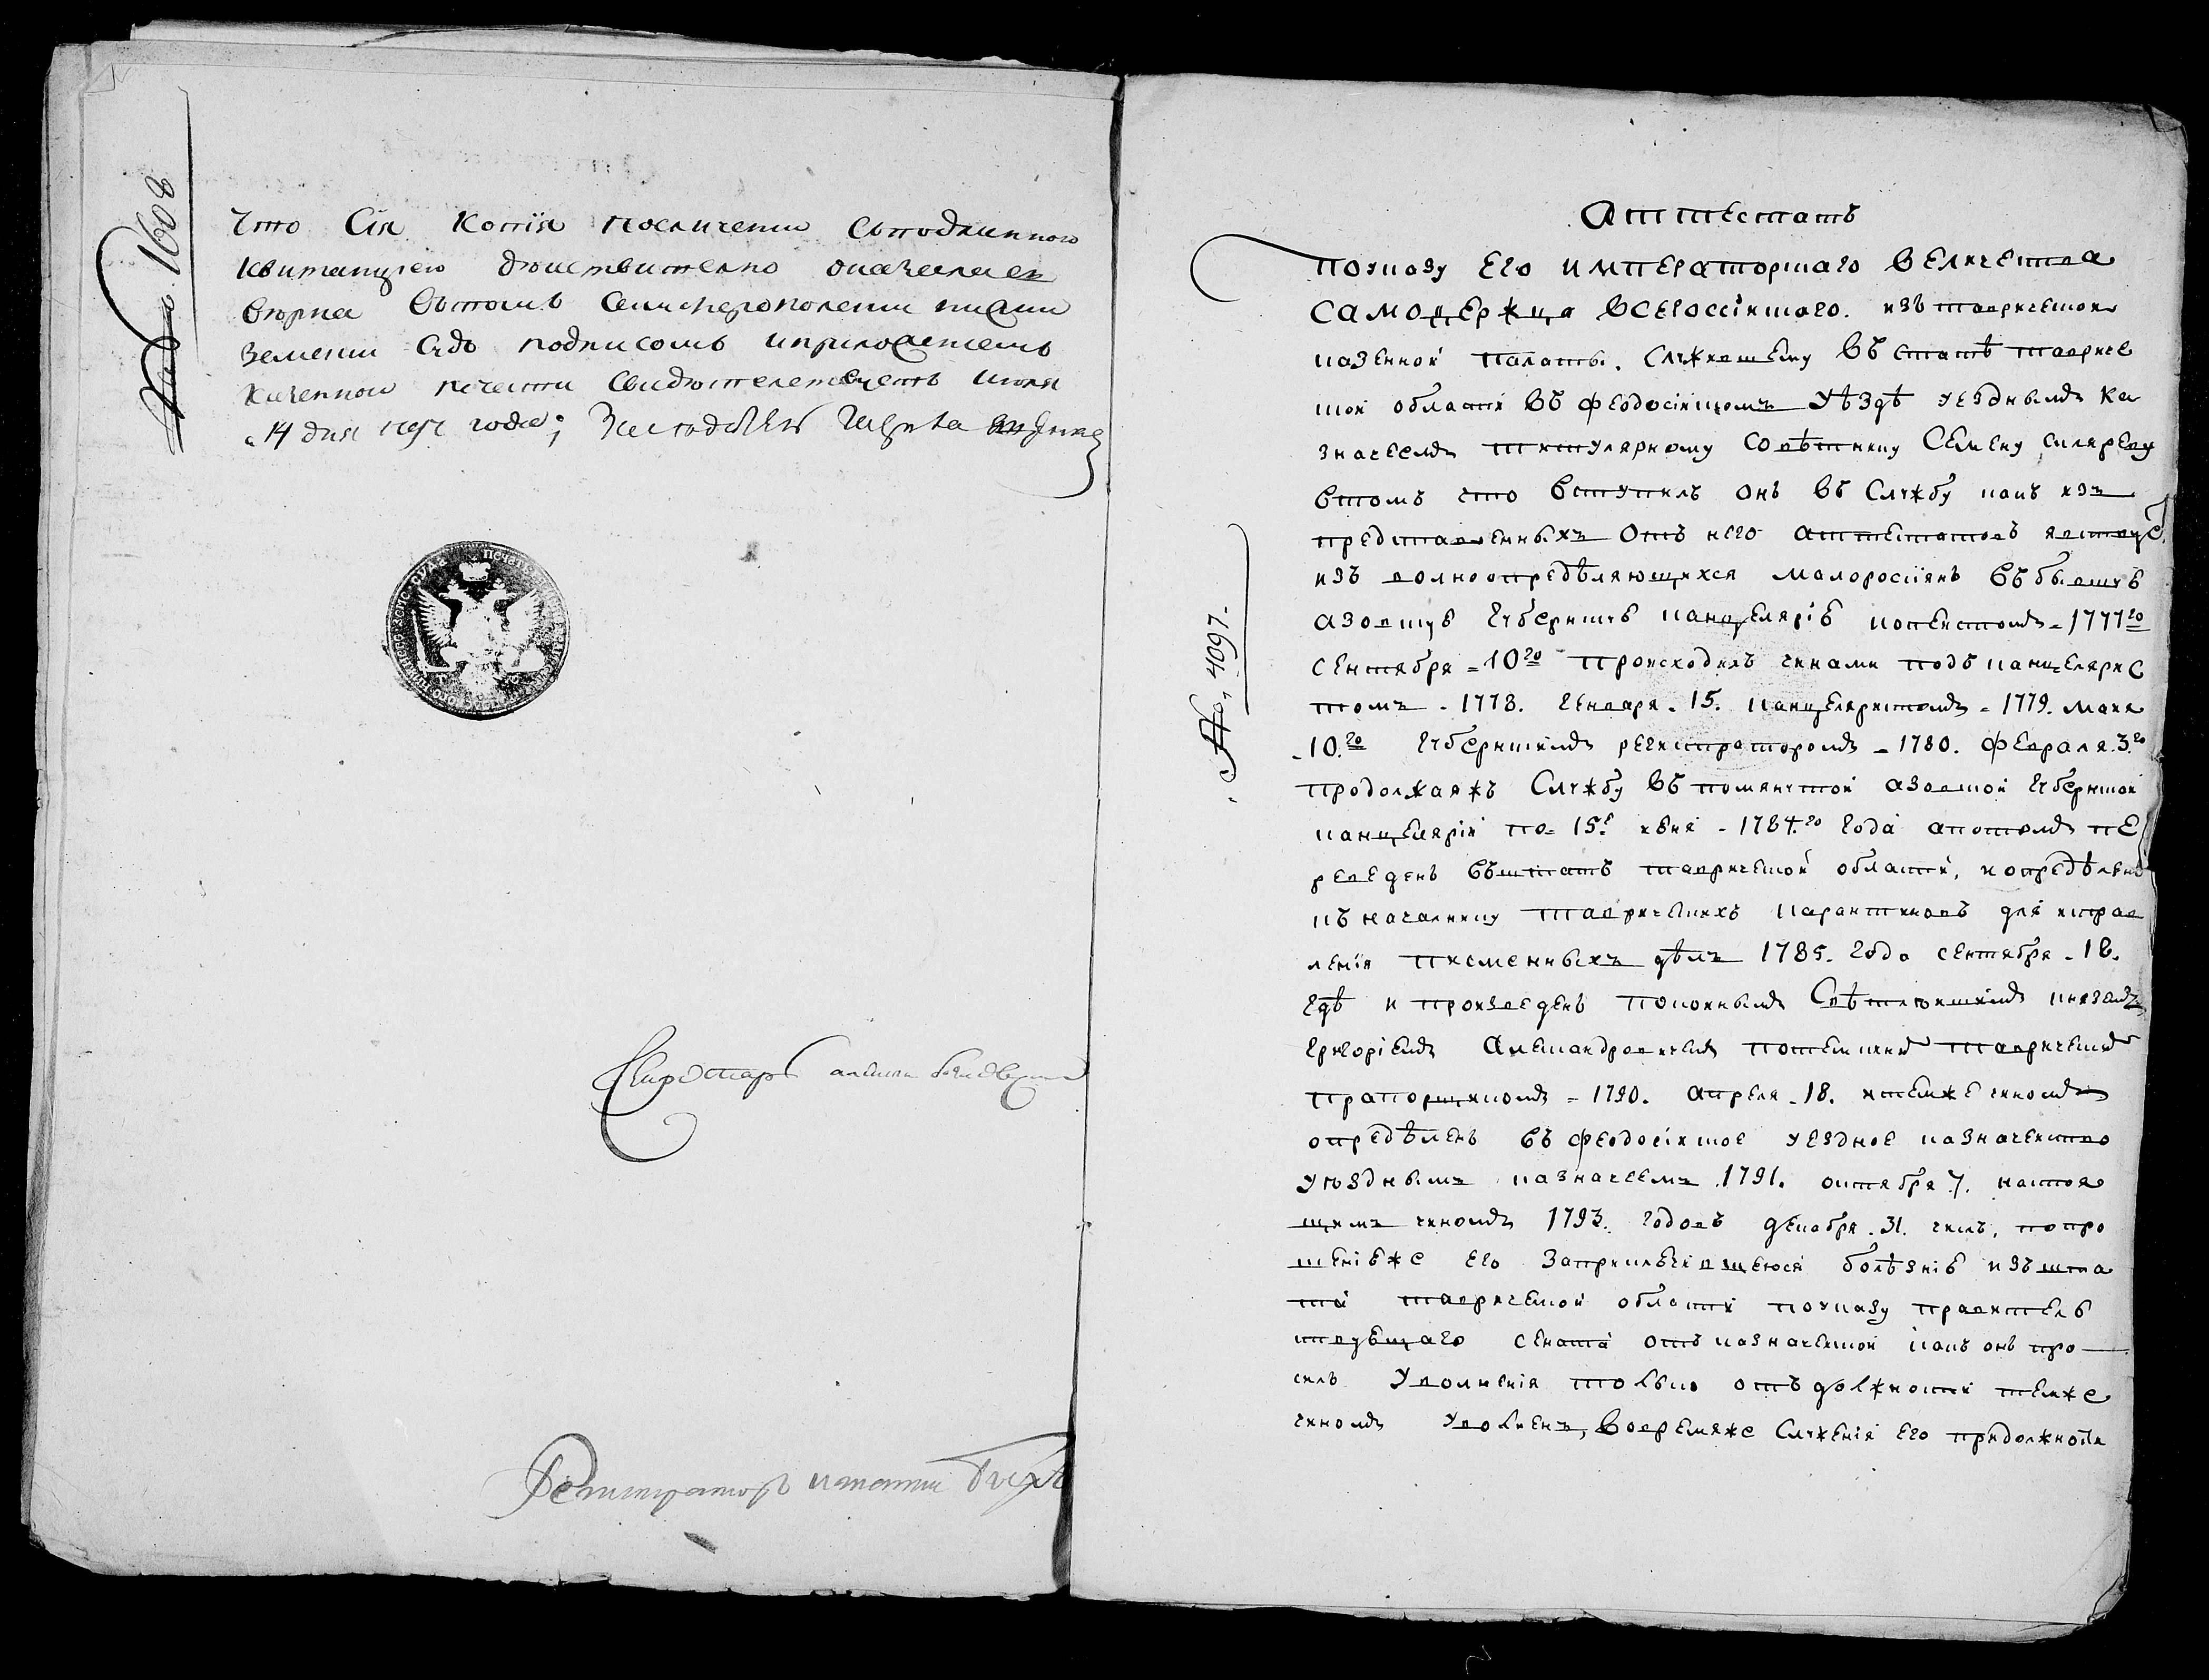 № 1608
Что Сія Копія посличеніи Сьподлинною
квитанцѣею дѣиствително оказалась
вѣрна въtomъ Семъферополскіи нижни
земскіи Судъ подписомъ иприложенiемъ
казенной печати свидѣтелствуетъ июля
14 дня 1797 года;
Секретарь
Регистраторъ
№ 4097.
Аттестатъ
поуказу Его императорскаго величества
самодержца всероссійскаго. изъ таврической
казенной палаты. служившему въ статѣ тавриче
ской области въ феодосійскомъ уѣздѣ уезднымъ ка
значеемъ титулярному совѣтнику Семену склярову
втомъ что вступилъ онъ въ службу какъ изъ
представленныхъ отъ него аттестатовъ явствуе
изъ волноопредѣляющихся малоросіянъ въ бывшую
азовскую губернскую канцелярію копеистомъ 1777го
сентября 10го происходилъ чинами подъ канцелярис
томъ 1778. генваря 15. канцеляристомъ 1779. маия
10.го губернскимъ регистраторомъ 1780. февраля 3.го
продолжаяжъ службу въ помянутой азовской губернской
канцеляріи по 15е июня 1784.го года апотомъ пе
реведенъ въштатъ таврической области, иопредѣленъ
къ началнику таврическихъ карантиновъ для исправ
ленія писменныхъ дѣлъ 1785. года сентября 18.
гдѣ и произведенъ покоинымъ свѣтлѣишимъ княземъ
григоріемъ александровичемъ потемкинымъ таврическимъ
прапорщикомъ 1790. апреля 18. итемже чиномъ
опредѣленъ въ феодосійское уездное казначеиство
уѣзднымъ казначеемъ 1791. октября 7. настоя
щимъ чиномъ 1793. годовъ декабря 31. числъ, попро
шеніюже его заприключившеюся болѣзнію изъ шта
та таврической области поуказу правителъ
ствующаго сената отъ казначейской какъ онъ про
силъ уволненія толко отъ должности темже
чиномъ уволненъ, вовремяже служенія его придолжности